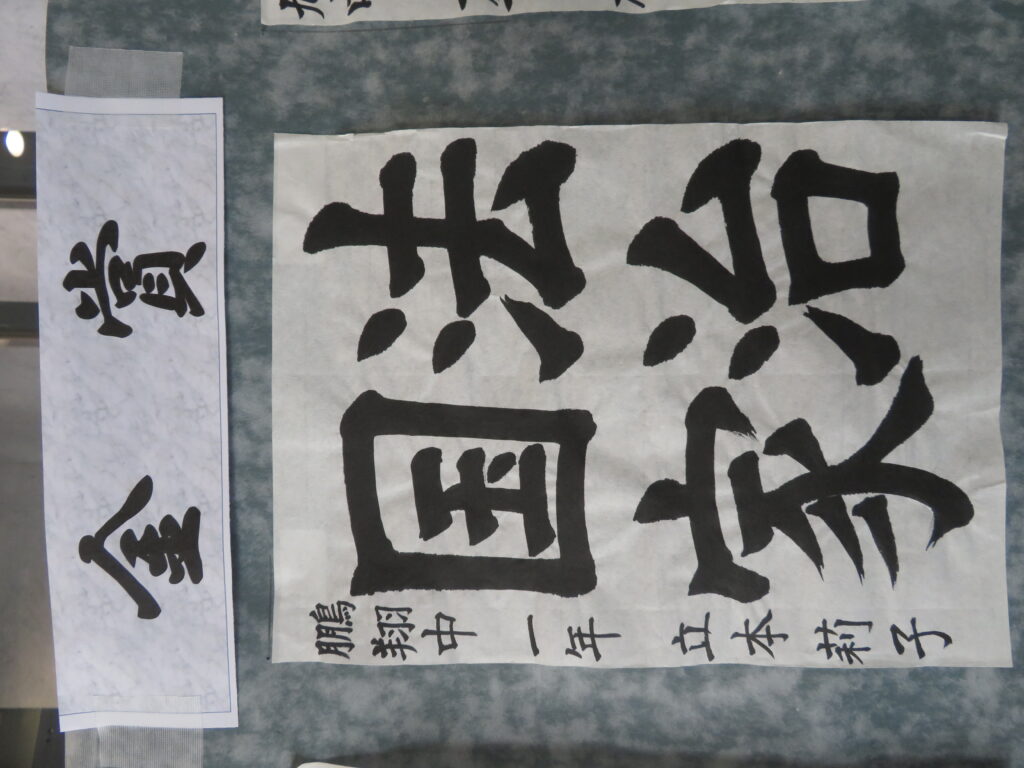 金賞
法治
国家
鵬翔中一年 立本莉子